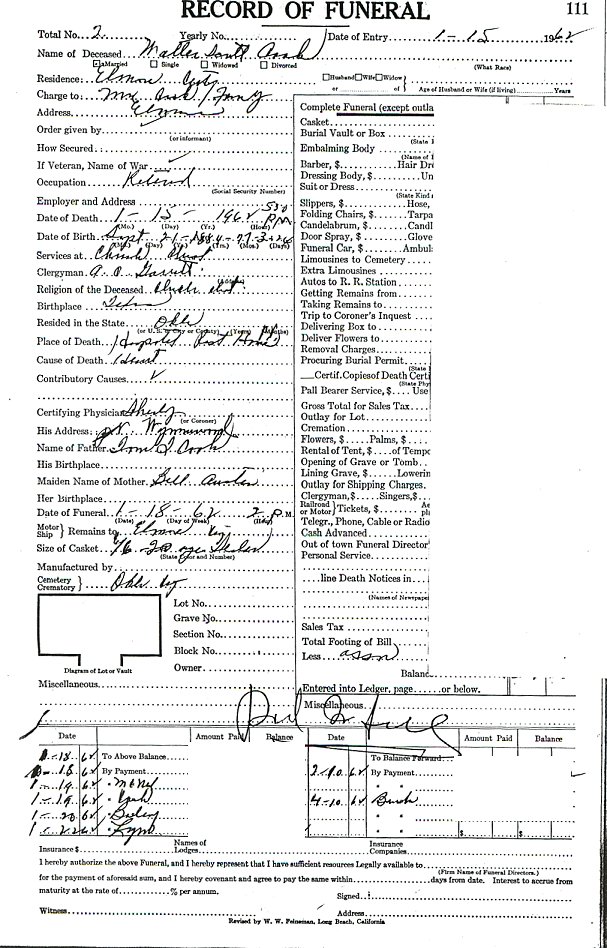 RECORD OF FUNERAL 111
Total No. 2 Yearly No. Date of Entry 1-15 1962
Name of Deceased
Married Single Widowed Divorced (What Race)
Residence: Elmore City Husband Wife Widow
or of Age of Husband or Wife (if living) Years
Charge to: Mrs
Address Elmore
Order given by
(or informant)
How Secured:
If Veteran, Name of War
Occupation Retired
(Social Security Number)
Employer and Address
Date of Death 1-15-1962 5:30 PM
(Mo.) (Day) (Yr.) (Hour)
Date of Birth Sept 21-1884
(Mo.) (Day) (Yr.) (Yrs.) (Mos.) (Days)
Services at Church
Clergyman A. O. Garrett
Religion of the Deceased Church
Birthplace
Resided in the State Okla
(or U.S. City or County) (Years) (Months)
Place of Death Hospital Rest Home
Cause of Death Heart
Contributory Causes
Certifying Physician
(or Coroner)
His Address: Wynnewood
Name of Father Cook
His Birthplace
Maiden Name of Mother
Her Birthplace
Date of Funeral 1-18-62 2 P.M.
(Date) (Day of Week) (Hour)
Motor Ship Remains to Elmore City
Size of Casket 6/6 20
(State Color and Number)
Manufactured by
Cemetery Crematory
Lot No.
Grave No.
Section No.
Block No.
Owner
Diagram of Lot or Vault
Miscellaneous
Complete Funeral (except outla
Casket
Burial Vault or Box
(State
Embalming Body
(Name of
Barber, $ Hair Dr
Dressing Body, $ Un
Suit or Dress
(State Kind
Slippers, $ Hose,
Folding Chairs, $ Tarpa
Candelabrum, $ Candl
Door Spray, $ Glove
Funeral Car, $ Ambul
Limousines to Cemetery
Extra Limousines
Autos to R. R. Station
Getting Remains from
Taking Remains to
Trip to Coroner's Inquest
Delivering Box to
Deliver Flowers to
Removal Charges
Procuring Burial Permit
(State
Certif. Copies of Death Certi
(State Phy
Pall Bearer Service, $ Use
Gross Total for Sales Tax
Outlay for Lot
Cremation
Flowers, $ Palms, $
Rental of Tent, $ of Tempo
Opening of Grave or Tomb
Lining Grave, $ Lowerin
Outlay for Shipping Charges
Clergyman, $ Singers, $
Railroad or Motor Tickets, $ Ae pl
Telegr., Phone, Cable or Radio
Cash Advanced
Out of town Funeral Director
Personal Service
line Death Notices in
(Names of Newspape
Sales Tax
Total Footing of Bill
Less assn
Balanc
Entered into Ledger, page or below.
Miscellaneous
Date Amount Paid Balance Date Amount Paid Balance
1-18 62 To Above Balance To Balance Forward
By Payment 2-10 62 By Payment
1-19 62
1-19 62 4-10 62 Bush
1-20 62
Insurance $ Names of Lodges Insurance Companies
I hereby authorize the above Funeral, and I hereby represent that I have sufficient resources Legally available to
(Firm Name of Funeral Directors.)
for the payment of aforesaid sum, and I hereby covenant and agree to pay the same within days from date. Interest to accrue from
maturity at the rate of % per annum.
Signed
Witness Address
Revised by W. W. Feineman, Long Beach, California